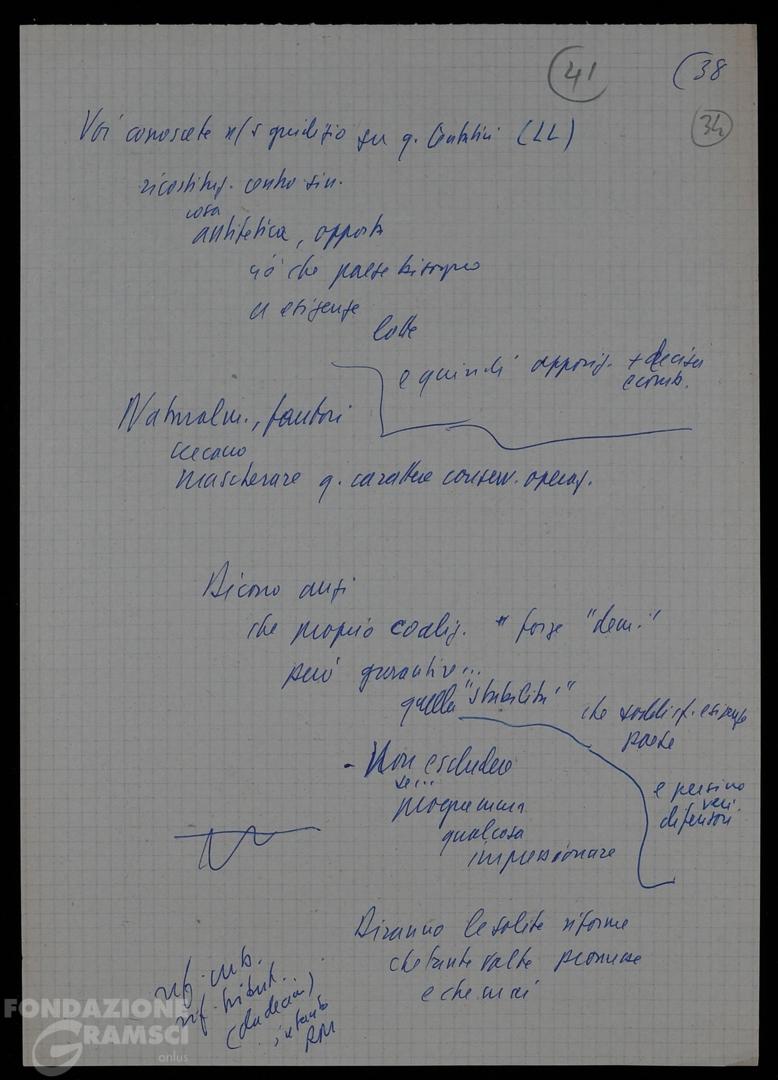 41
(38
34
Voi conoscete n/s giudizio su q. tentativi (LL)
ricostituz. centro sin.
cosa
antitetica, opposta
ciò che paese bisogno
esigenze
lotte
e quindi opposiz. + decisa
e comb.
Naturalm., fautori
cercano
mascherare q. carattere conserv. operaz.
Dicono anzi
che proprio coaliz. forze "dem."
può garantire...
quella "stabilità"
che soddisf. esigenze
paese
e persino
veri
difensori
- Non escludere
se...
programma
qualcosa
impressionare
Diranno le solite riforme
che tante volte promesse
e che mai
rif. urb.
rif. tribut...
intanto
FONDAZIONE
GRAMSCI
onlus